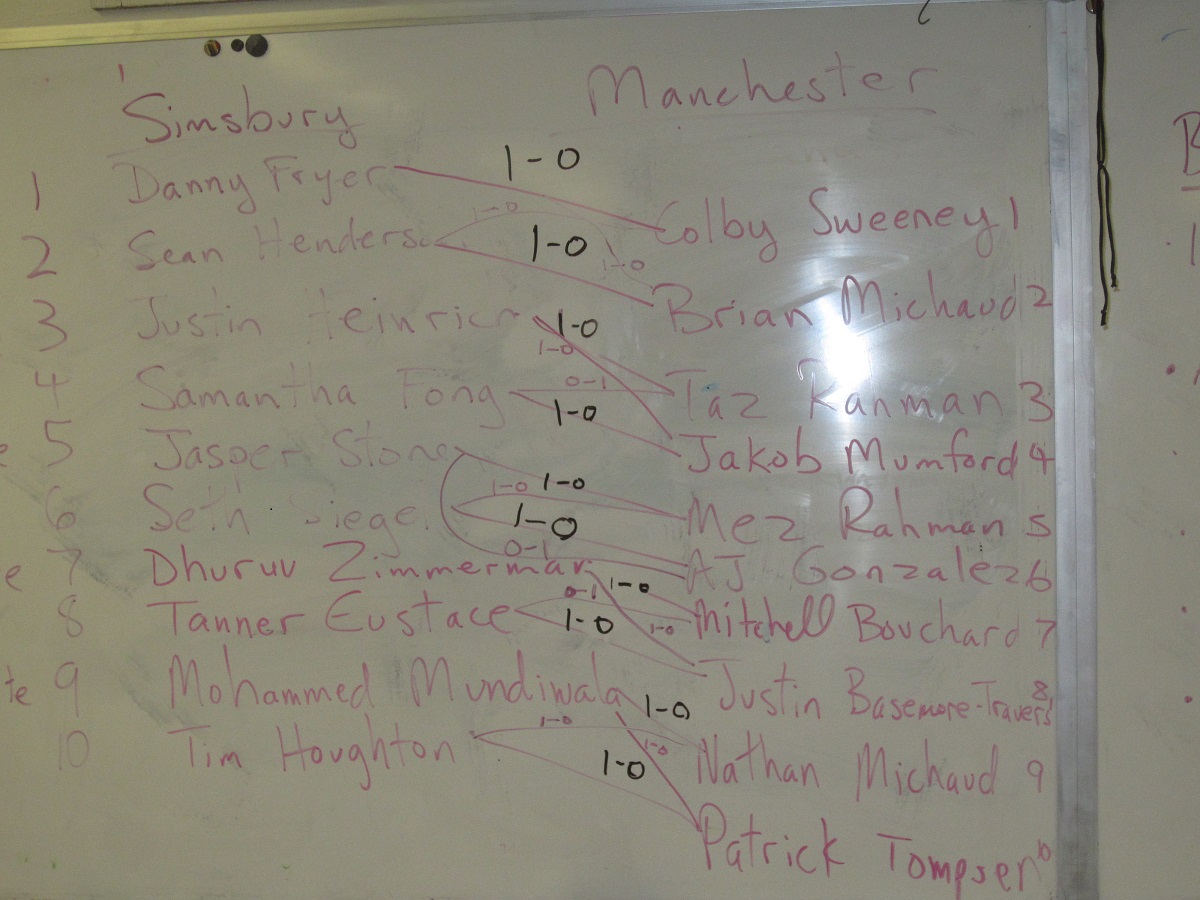 Simsbury Manchester
1 Danny Fryer 1-0 Colby Sweeney 1
1-0
2 Sean Henders 1-0 1-0 Brian Michaud 2
3 Justin Heinrich 1-0
1-0
4 Samantha Fong 0-1 Taz Rahman 3
1-0
5 Jasper Stone Jakob Mumford 4
1-0 1-0
6 Seth Siegel 1-0 Mez Rahman 5
0-1
e 7 Dhuruv Zimmerman 1-0 AJ Gonzalez 6
0-1
8 Tanner Eustace 1-0 1-0 Mitchell Bouchard 7
te 9 Mohammed Mundiwala 1-0 Justin Basemore-Travers 8
10 Tim Houghton 1-0 1-0 Nathan Michaud 9
1-0
Patrick Tompsen 10